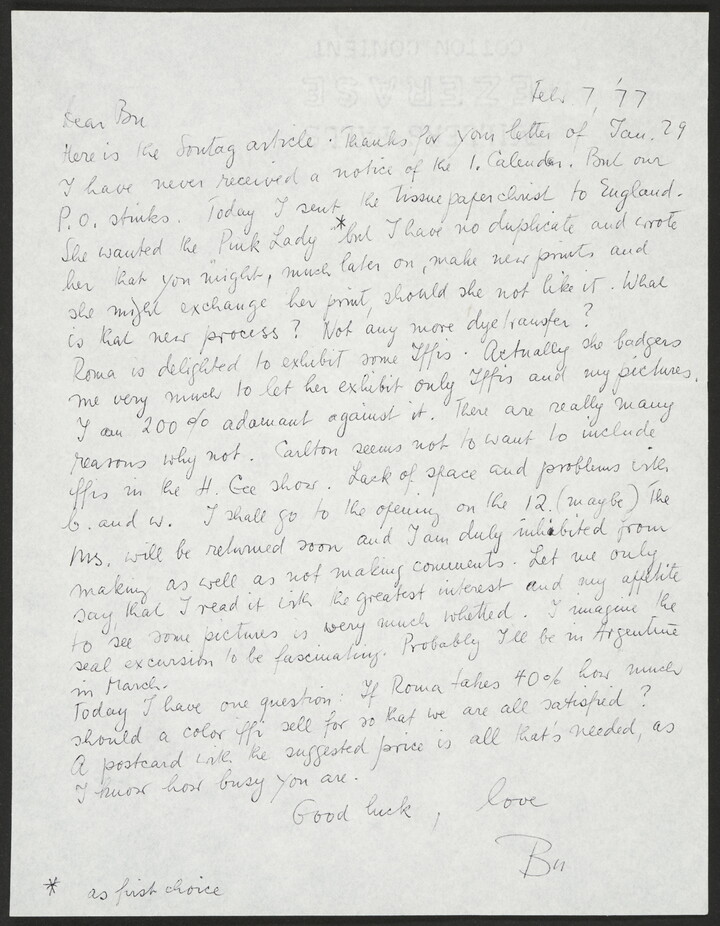 COTTON CONTENT
EZERASE
Feb. 7, '77
Dear Bu
Here is the Sontag article. Thanks for your letter of Jan. 29
I have never received a notice of the 1. Calendar. But our
P.O. stinks. Today I sent the tissuepaperchrist to England.
She wanted the "Pink Lady"* but I have no duplicate and wrote
her that you might, much later on, make new prints and
she might exchange her print, should she not like it. What
is that new process? Not any more dyetransfer?
Roma is delighted to exhibit some Iffis. Actually she badgers
me very much to let her exhibit only Iffis and my pictures.
I am 200% adamant against it. There are really many
reasons why not. Carlton seems not to want to include
iffis in the H. Gee show. Lack of space and problems with
b. and w. I shall go to the opening on the 12. (maybe) The
Ms. will be returned soon and I am duly inhibited from
making as well as not making comments. Let me only
say, that I read it with the greatest interest and my appetite
to see some pictures is very much whetted. I imagine the
seal excursion to be fascinating. Probably I'll be in Argentine
in March.
Today I have one question: If Roma takes 40% how much
should a color iffi sell for so that we are all satisfied?
A postcard with the suggested price is all that's needed, as
I know how busy you are.
Good luck, love
Bu
* as first choice